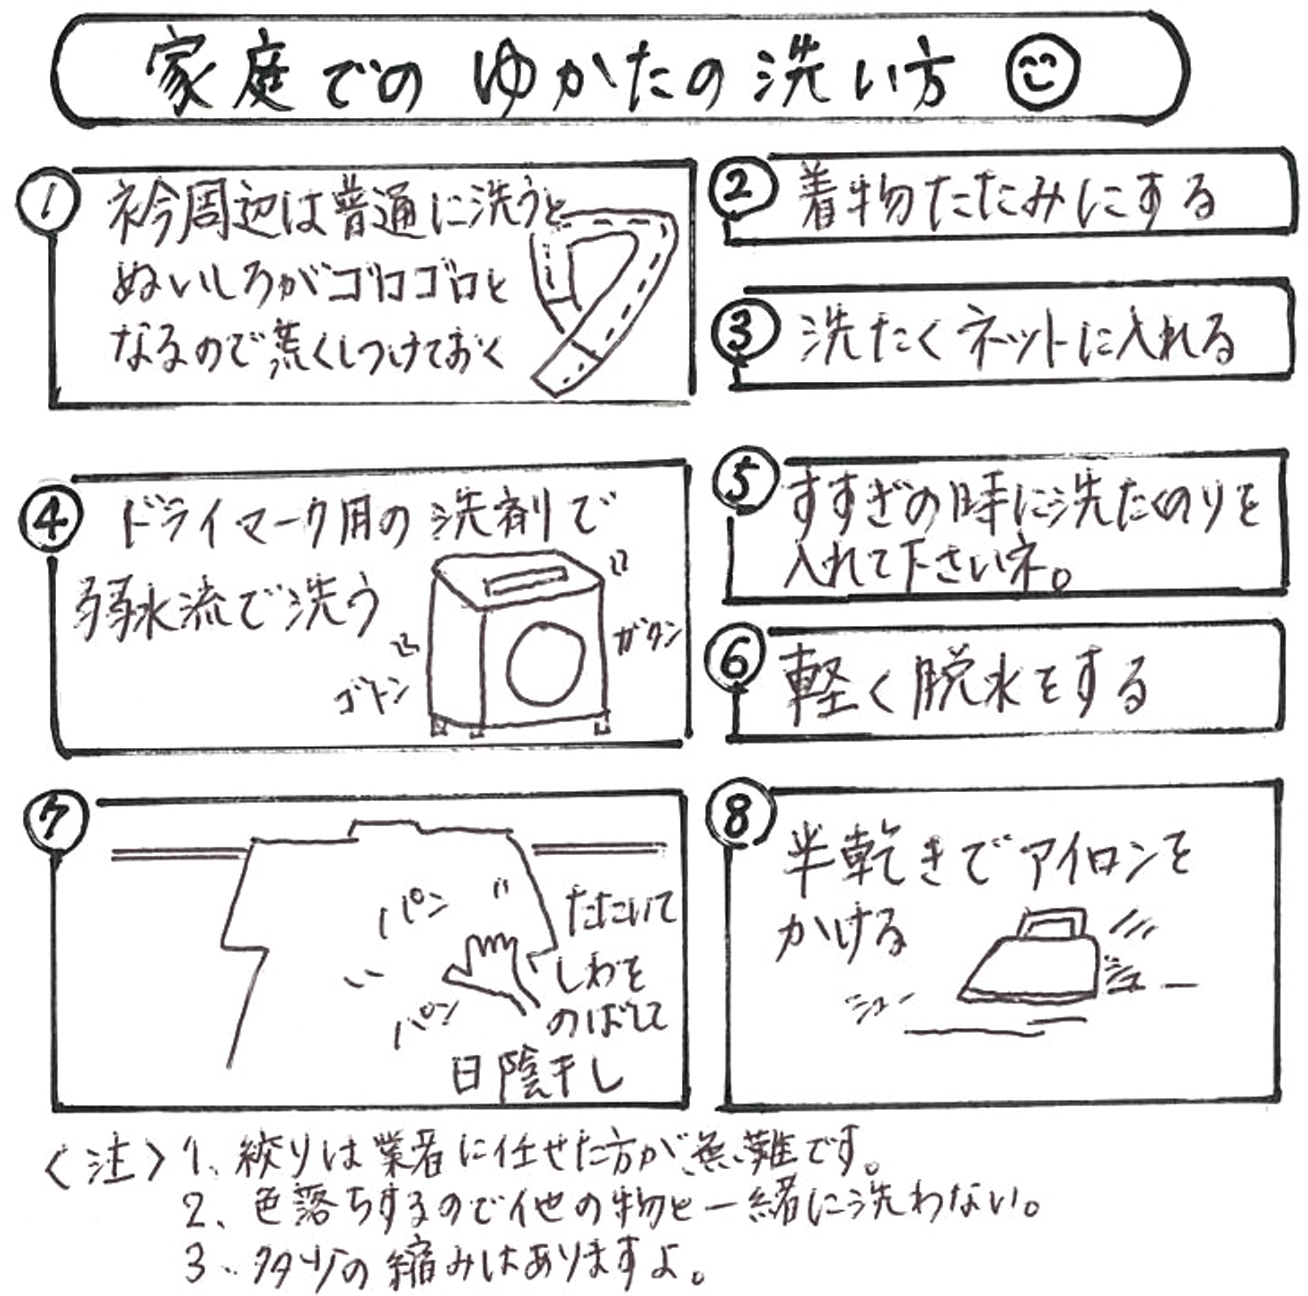 家庭でのゆかたの洗い方
1
衿周辺は普通に洗うと
ぬいしろがゴロゴロと
なるので荒くしつけておく
2
着物たたみにする
3
洗たくネットに入れる
4
ドライマーク用の洗剤で
弱水流で洗う
ガタン
ゴトン
5
すすぎの時に洗たくのりを
入れて下さいネ。
6
軽く脱水をする
7
パン
パン
たたいて
しわを
のばして
日陰干し
8
半乾きでアイロンを
かける
ジュー
ジュー
〈注〉1、絞りは業者に任せた方が無難です。
2、色落ちするので他の物と一緒に洗わない。
3、多少の縮みはありますよ。